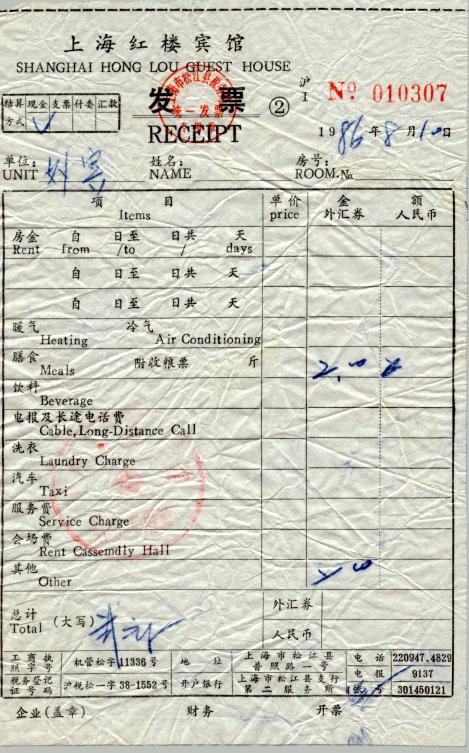 上海红楼宾馆
SHANGHAI HONG LOU GUEST HOUSE
结算方式 现金 支票 付委 汇款
✓
发票 ②
RECEIPT
沪
I
№ 010307
1986年8月10日
单位: 外宾
UNIT
姓名:
NAME
房号:
ROOM.№
项 目 单价 金 额
Items price 外汇券 人民币
房金 自 日至 日共 天
Rent from /to / days
自 日至 日共 天
自 日至 日共 天
暖气 冷气
Heating Air Conditioning
膳食 附收粮票 斤
Meals
饮料
Beverage
电报及长途电话费
Cable,Long-Distance Call
洗衣
Laundry Charge
汽车
Taxi
服务费
Service Charge
会场费
Rent Cassemdly Hall
其他
Other
总计 (大写) 外汇券
Total 人民币
工商执照字号 机管松字11336号 地址 上海市松江县普照路一号 电话 220947.4829
电报 9137
税务登记证号码 沪税松一字38-1552号 开户银行 上海市松江县支行第二服务所 张号 301450121
企业(盖章) 财务 开票